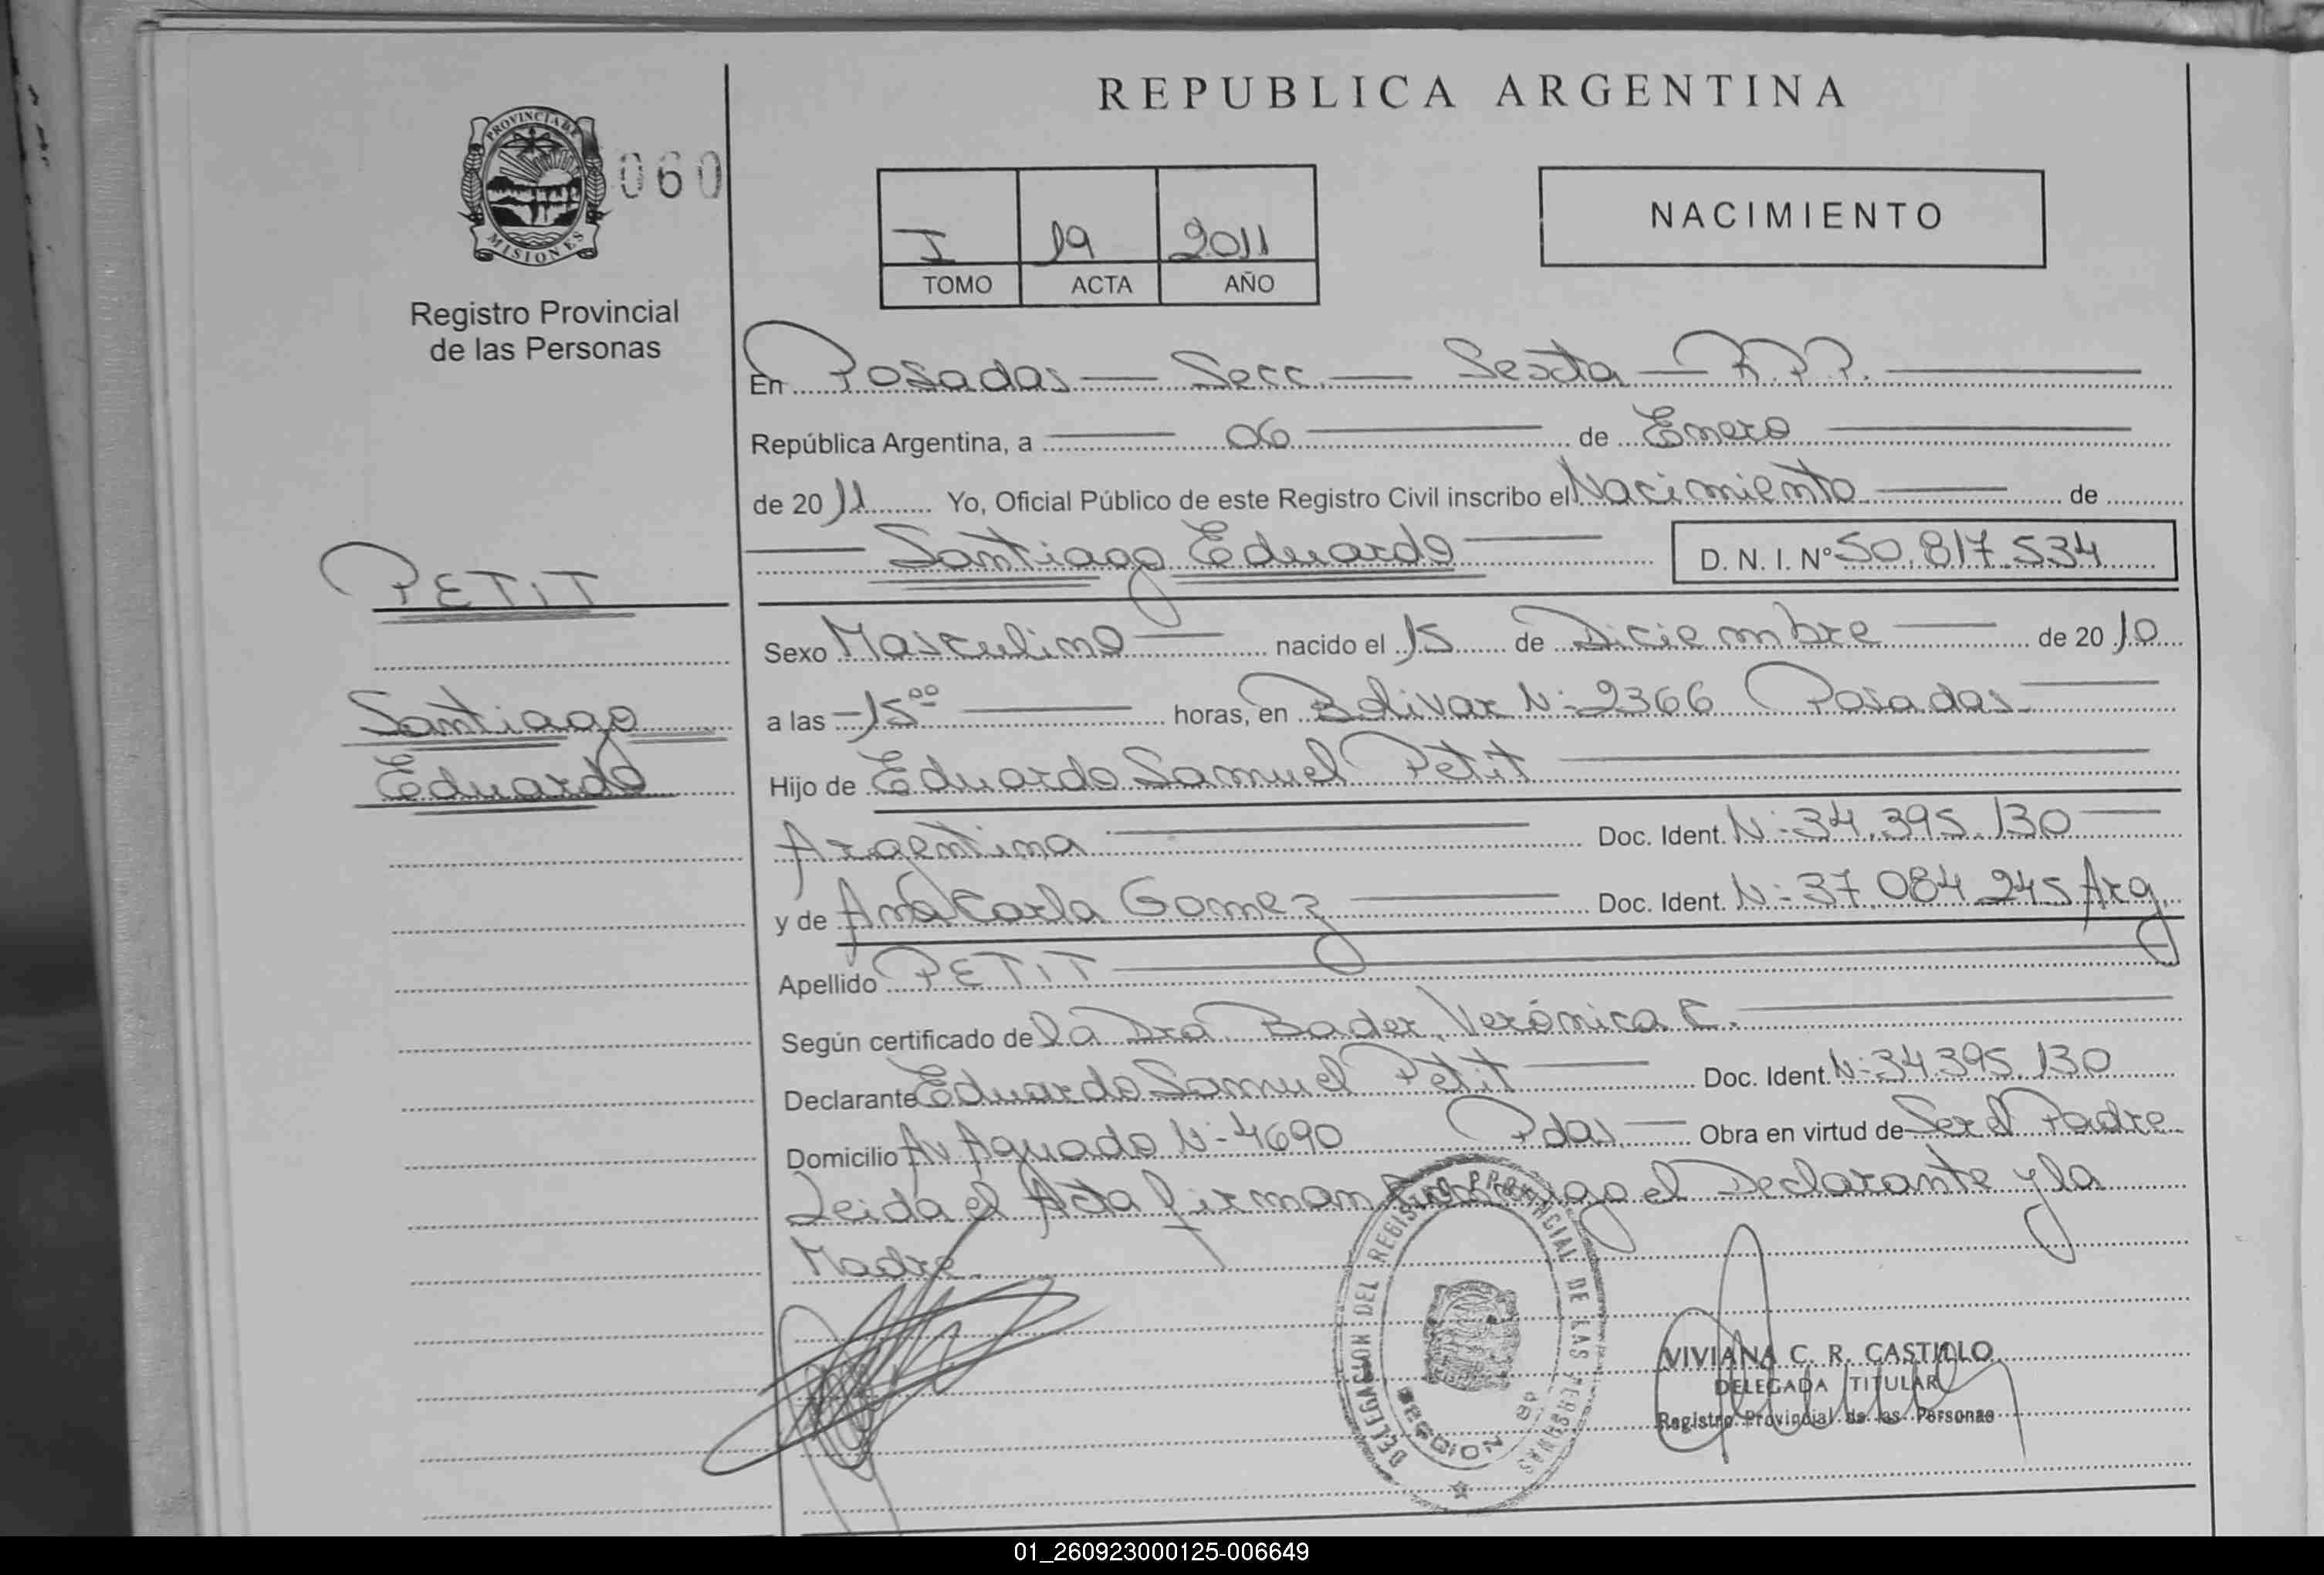 REPUBLICA ARGENTINA
PROVINCIA DE
MISIONES
060
Registro Provincial
de las Personas
I 19 2011
TOMO ACTA AÑO
NACIMIENTO
En Posadas — Secc — Sexta — R.P.P.
República Argentina, a 06 de Enero
de 2011 Yo, Oficial Público de este Registro Civil inscribo el Nacimiento de
Santiago Eduardo D. N. I. Nº 50.817.534
PETIT
Santiago
Eduardo
Sexo Masculino nacido el 15 de Diciembre de 2010
a las 15 00 horas, en Bolivar Nº 2366 Posadas
Hijo de Eduardo Samuel Petit
Argentina Doc. Ident. Nº 34.395.130
y de Ana Carla Gomez Doc. Ident. Nº 37.084.245 Arg.
Apellido PETIT
Según certificado de la Dra Bader, Verónica C.
Declarante Eduardo Samuel Petit Doc. Ident. Nº 34.395.130
Domicilio Av Aguado Nº 4690 Pdas. Obra en virtud de Ser el Padre
Leida el Acta firman conmigo el Declarante y la
Madre.
DELEGACION DEL REGISTRO PROVINCIAL DE LAS PERSONAS
VIVIANA C. R. CASTILLO
DELEGADA TITULAR
Registro Provincial de las Personas
01_260923000125-006649